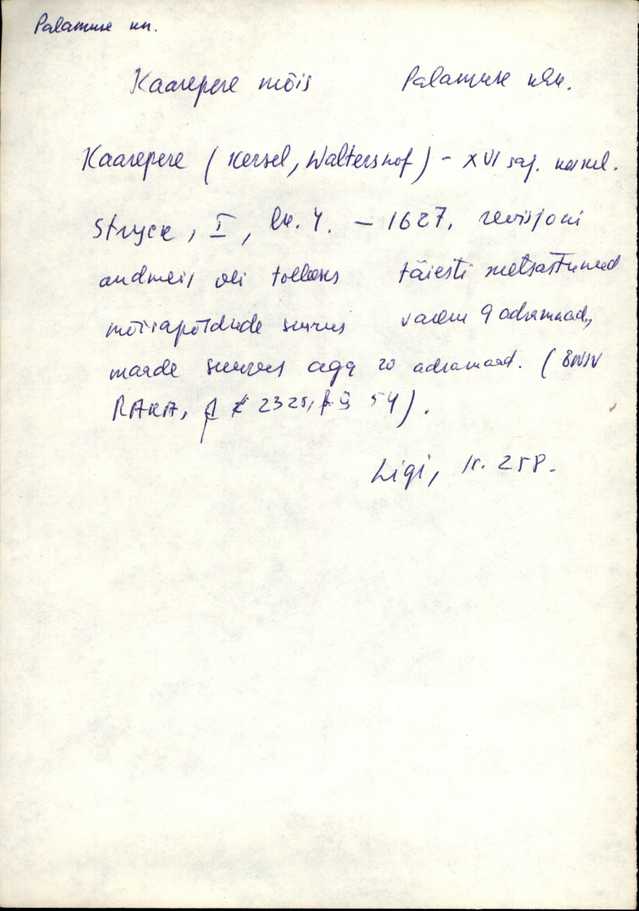 Palamuse kn.
Kaarepere mõis Palamuse khk.
Kaarepere (Kersel, Waltershof) - XVI saj. keskel.
Stryck, I, lk. 4. - 1627. revisjoni
andmeil oli tolleks täiesti metsastunud
mõisapõldude suurus varem 9 adramaad,
maade suurus aga 20 adramaad. (ENSV
RAKA, 2325, 54).
Ligi, lk. 258.